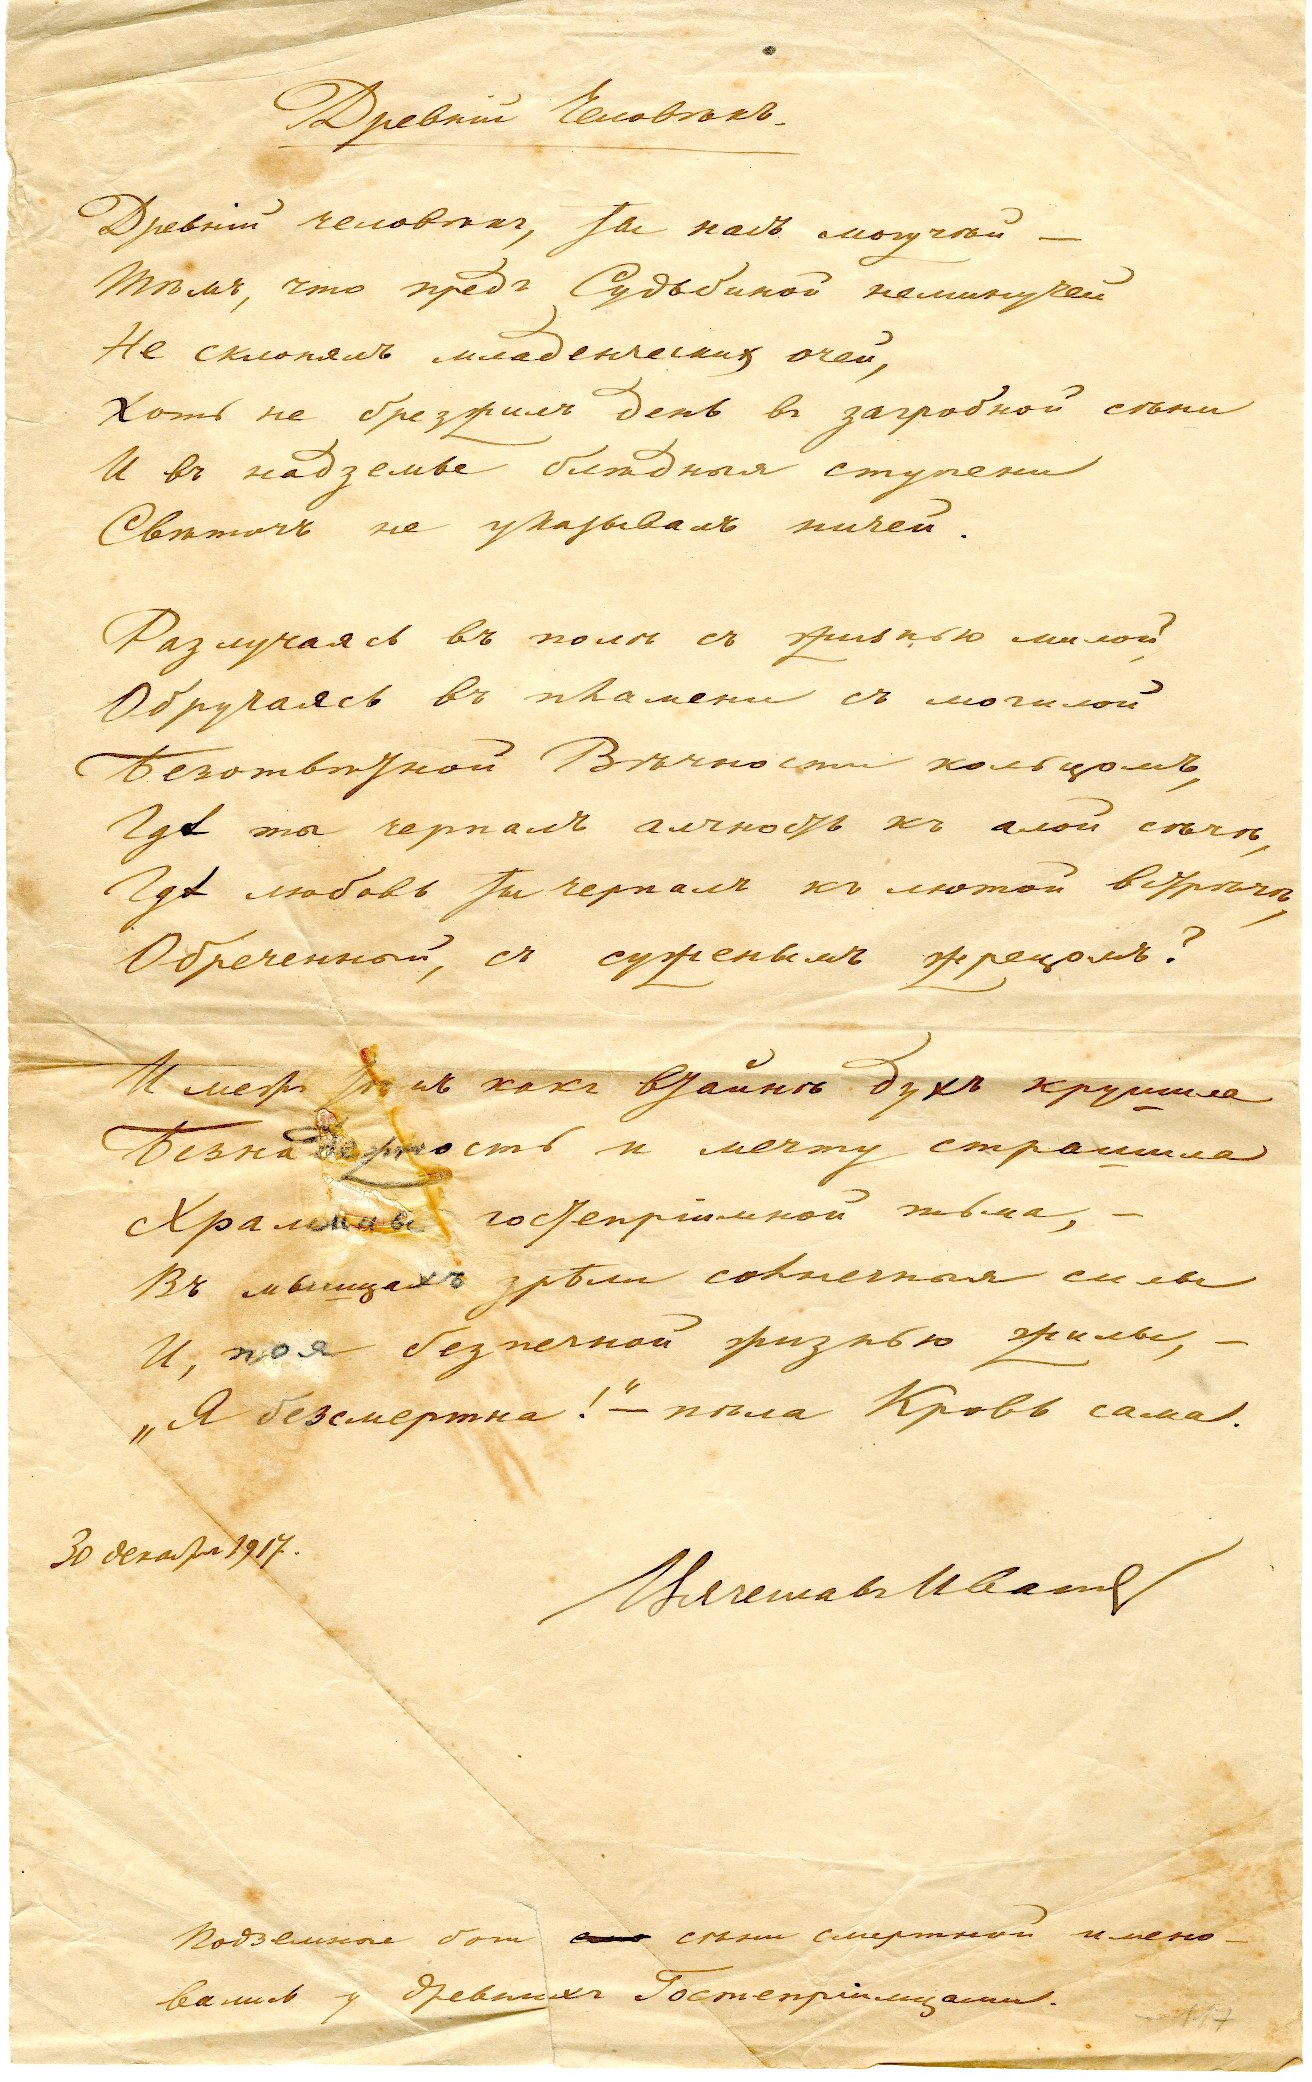 Древній Человѣкъ.
Древній человѣкъ, ты насъ могучѣй —
Тѣмъ, что предъ Судьбиной неминучей
Не склонялъ младенческихъ очей,
Хоть не брезжилъ день въ загробной сѣни
И въ надземье блѣдныя ступени
Свѣточъ не указывалъ ничей.
Разлучаясь въ полѣ съ жизнью милой,
Обручаясь въ пламени съ могилой
Безотвѣтной Вѣчности кольцомъ,
Гдѣ ты черпалъ алчность къ алой сѣчѣ,
Гдѣ любовь ты черпалъ къ лютой встрѣчѣ,
Обреченный, съ суженымъ жрецомъ?
И межъ тѣмъ какъ втайнѣ духъ крушила
Безнадежность и мечту страшила
Храмина гостепріимной тьма, —
Въ мышцахъ зрѣли солнечныя силы
И, поя безпечной жизнью жилы, —
„Я безсмертна!“ — пѣла Кровь сама.
30 декабря 1917.
Вячеславъ Ивановъ
Подземные боги сѣни смертной имено-
вались у древнихъ Гостепріимцами.
117